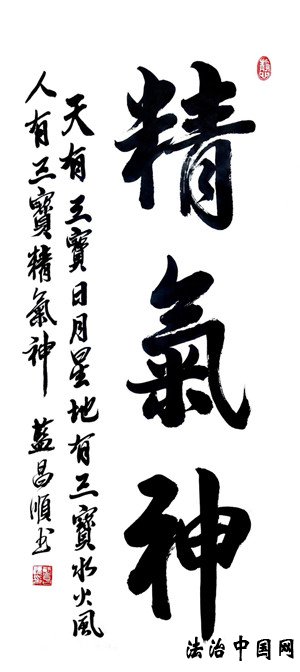 精氣神
天有三寶日月星地有三寶水火風
人有三寶精氣神 藍昌順書
法治中国网